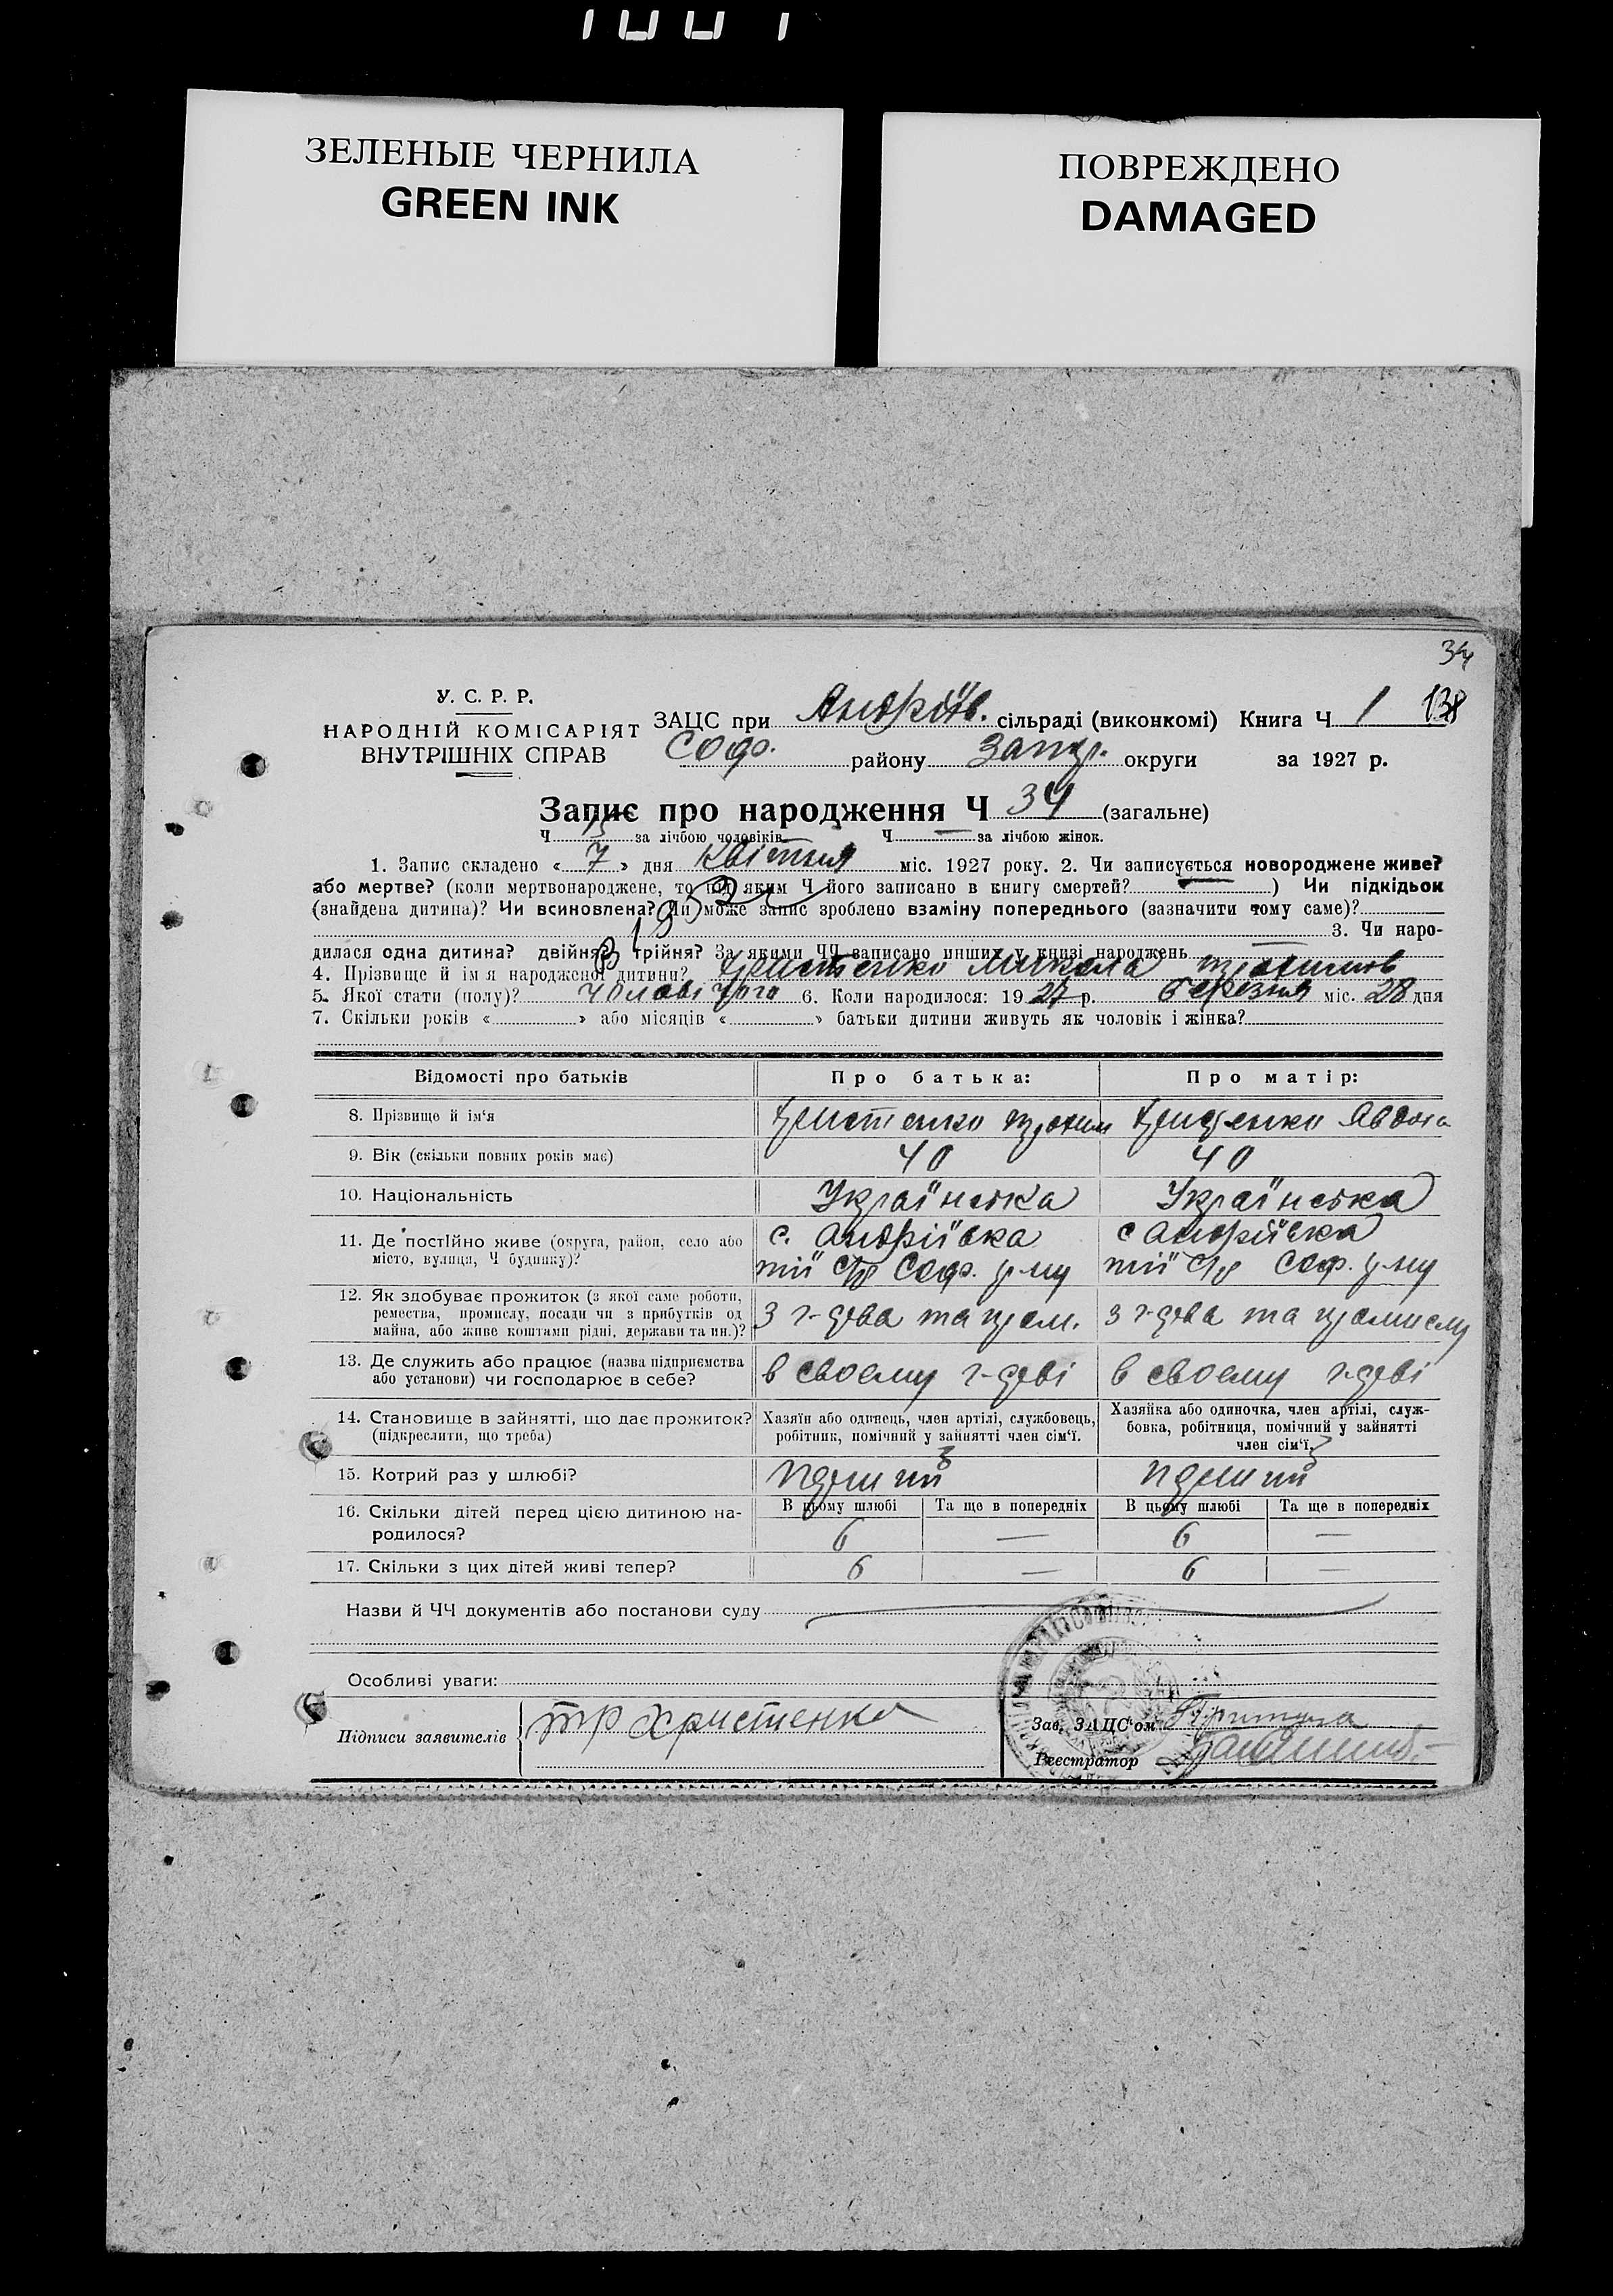 ЗЕЛЕНЫЕ ЧЕРНИЛА
GREEN INK
ПОВРЕЖДЕНО
DAMAGED
34
У. С. Р. Р.
НАРОДНІЙ КОМІСАРІЯТ
ВНУТРІШНІХ СПРАВ
ЗАЦС при Андріїв. сільраді (виконкомі) Книга Ч 1 138
Соф. району Запр. округи за 1927 р.
Запис про народження Ч 34 (загальне)
Ч 13 за лічбою чоловіків Ч — за лічбою жінок.
1. Запис складено « 7 » дня Квітня міс. 1927 року. 2. Чи записується новороджене живе?
або мертве? (коли мертвонароджене, то під яким Ч його записано в книгу смертей? ) Чи підкідьок
(знайдена дитина)? Чи всиновлена? Чи може запис зроблено взаміну попереднього (зазначити тому саме)?
3. Чи наро-
дилася одна дитина? двійня? трійня? За якими ЧЧ записано инших у книзі народжень —
4. Прізвище й ім'я народженої дитини? Христенко Микола
5. Якої стати (полу)? чоловічого 6. Коли народилося: 1927 р. березня міс. 28 дня
7. Скільки років « » або місяців « » батьки дитини живуть як чоловік і жінка?
Відомості про батьків Про батька: Про матір:
8. Прізвище й ім'я Христенко Христенко Явдоха
9. Вік (скільки повних років має) 40 40
10. Національність Українська Українська
11. Де постійно живе (округа, район, село або с. Андріївка с Андріївка
місто, вулиця, Ч будинку)? тії с/р Соф. р-ну тії с/р Соф. р-ну
12. Як здобуває прожиток (з якої саме роботи,
ремества, промислу, посади чи з прибутків од з г-дова та пром. з г-дова та промислу
майна, або живе коштами рідні, держави та ин.)?
13. Де служить або працює (назва підприємства в своему г-дові в своему г-дові
або установи) чи господарює в себе?
14. Становище в зайнятті, що дає прожиток? Хазяїн або одинець, член артілі, службовець, Хазяйка або одиночка, член артілі, служ-
(підкреслити, що треба) робітник, помічний у зайнятті член сім'ї. бовка, робітниця, помічний у зайнятті
член сім'ї.
15. Котрий раз у шлюбі?
16. Скільки дітей перед цією дитиною на- В цьому шлюбі Та ще в попередніх В цьому шлюбі Та ще в попередніх
родилося? 6 — 6 —
17. Скільки з цих дітей живі тепер? 6 — 6 —
Назви й ЧЧ документів або постанови суду
Особливі уваги:
Підписи заявителів тр Христенко
Зав. ЗАЦС'ом Притула
Реєстратор